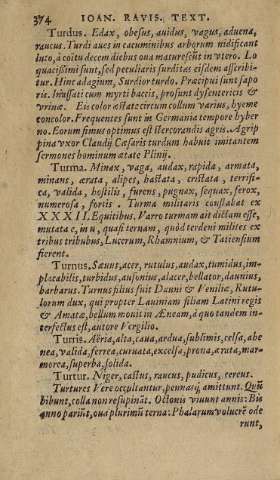 374 IOAN. RAVIS. TEXT.
Turdus. Edax, obesus, auidus, vagus, aduena,
raucus. Turdi aues in cacuminibus arborum nidificant
luto, à coitu decem diebus oua maturescũt in vtero. Lo
quacissimi sunt, sed peculiaris surditas eisdem asscribi-
tur. Hinc adagium, Surdior turdo. Præcipui sunt sapo
ris. Inussati cum myrti baccis, prosunt dysentericis &
vrinæ. Eis color æstate circum collum varius, hyeme
concolor. Frequentes sunt in Germania tempore hyber
no. Eorum fimus optimus est stercorandis agris. Agrip
pina vxor Claudij Cæsaris turdum habuit imitantem
sermones hominum ætate Plinij.
Turma. Minax, vaga, audax, rapida, armata,
minans, ærata, alipes, hastata, cristata, terrifi-
ca, valida, hostilis, furens, pugnax, sequax, ferox,
numerosa, fortis. Turma militaris constabat ex
XXXII. Equitibus. Varro turmam ait dictam esse,
mutata e, in u, quasi ternam, quòd terdeni milites ex
tribus tribubus, Lucerum, Rhamnium, & Tatiensium
fierent.
Turnus. Sauus, acer, rutulus, audax, tumidus, im-
placabilis, turbidus, ausonius, alacer, bellator, daunius,
barbarus. Turnus filius fuit Dauni & Veniliæ, Rutu-
lorum dux, qui propter Lauiniam filiam Latini regis
& Amatæ, bellum mouit in Æneam, à quo tandem in-
terfectus est, autore Vergilio.
Turris. Aëria, alta, caua, ardua, sublimis, celsa, ahe
nea, valida, ferrea, curuata, excelsa, prona, ærata, mar-
morea, superba, solida.
Turtur. Niger, castus, raucus, pudicus, cereus.
Turtures Vere occultantur, pennasq́; amittunt. Quũ
bibunt, colla non resupināt. Octonis viuunt annis: Bis
anno pariūt, oua plurimũ terna: Phalarum volucrẽ ode
runt,